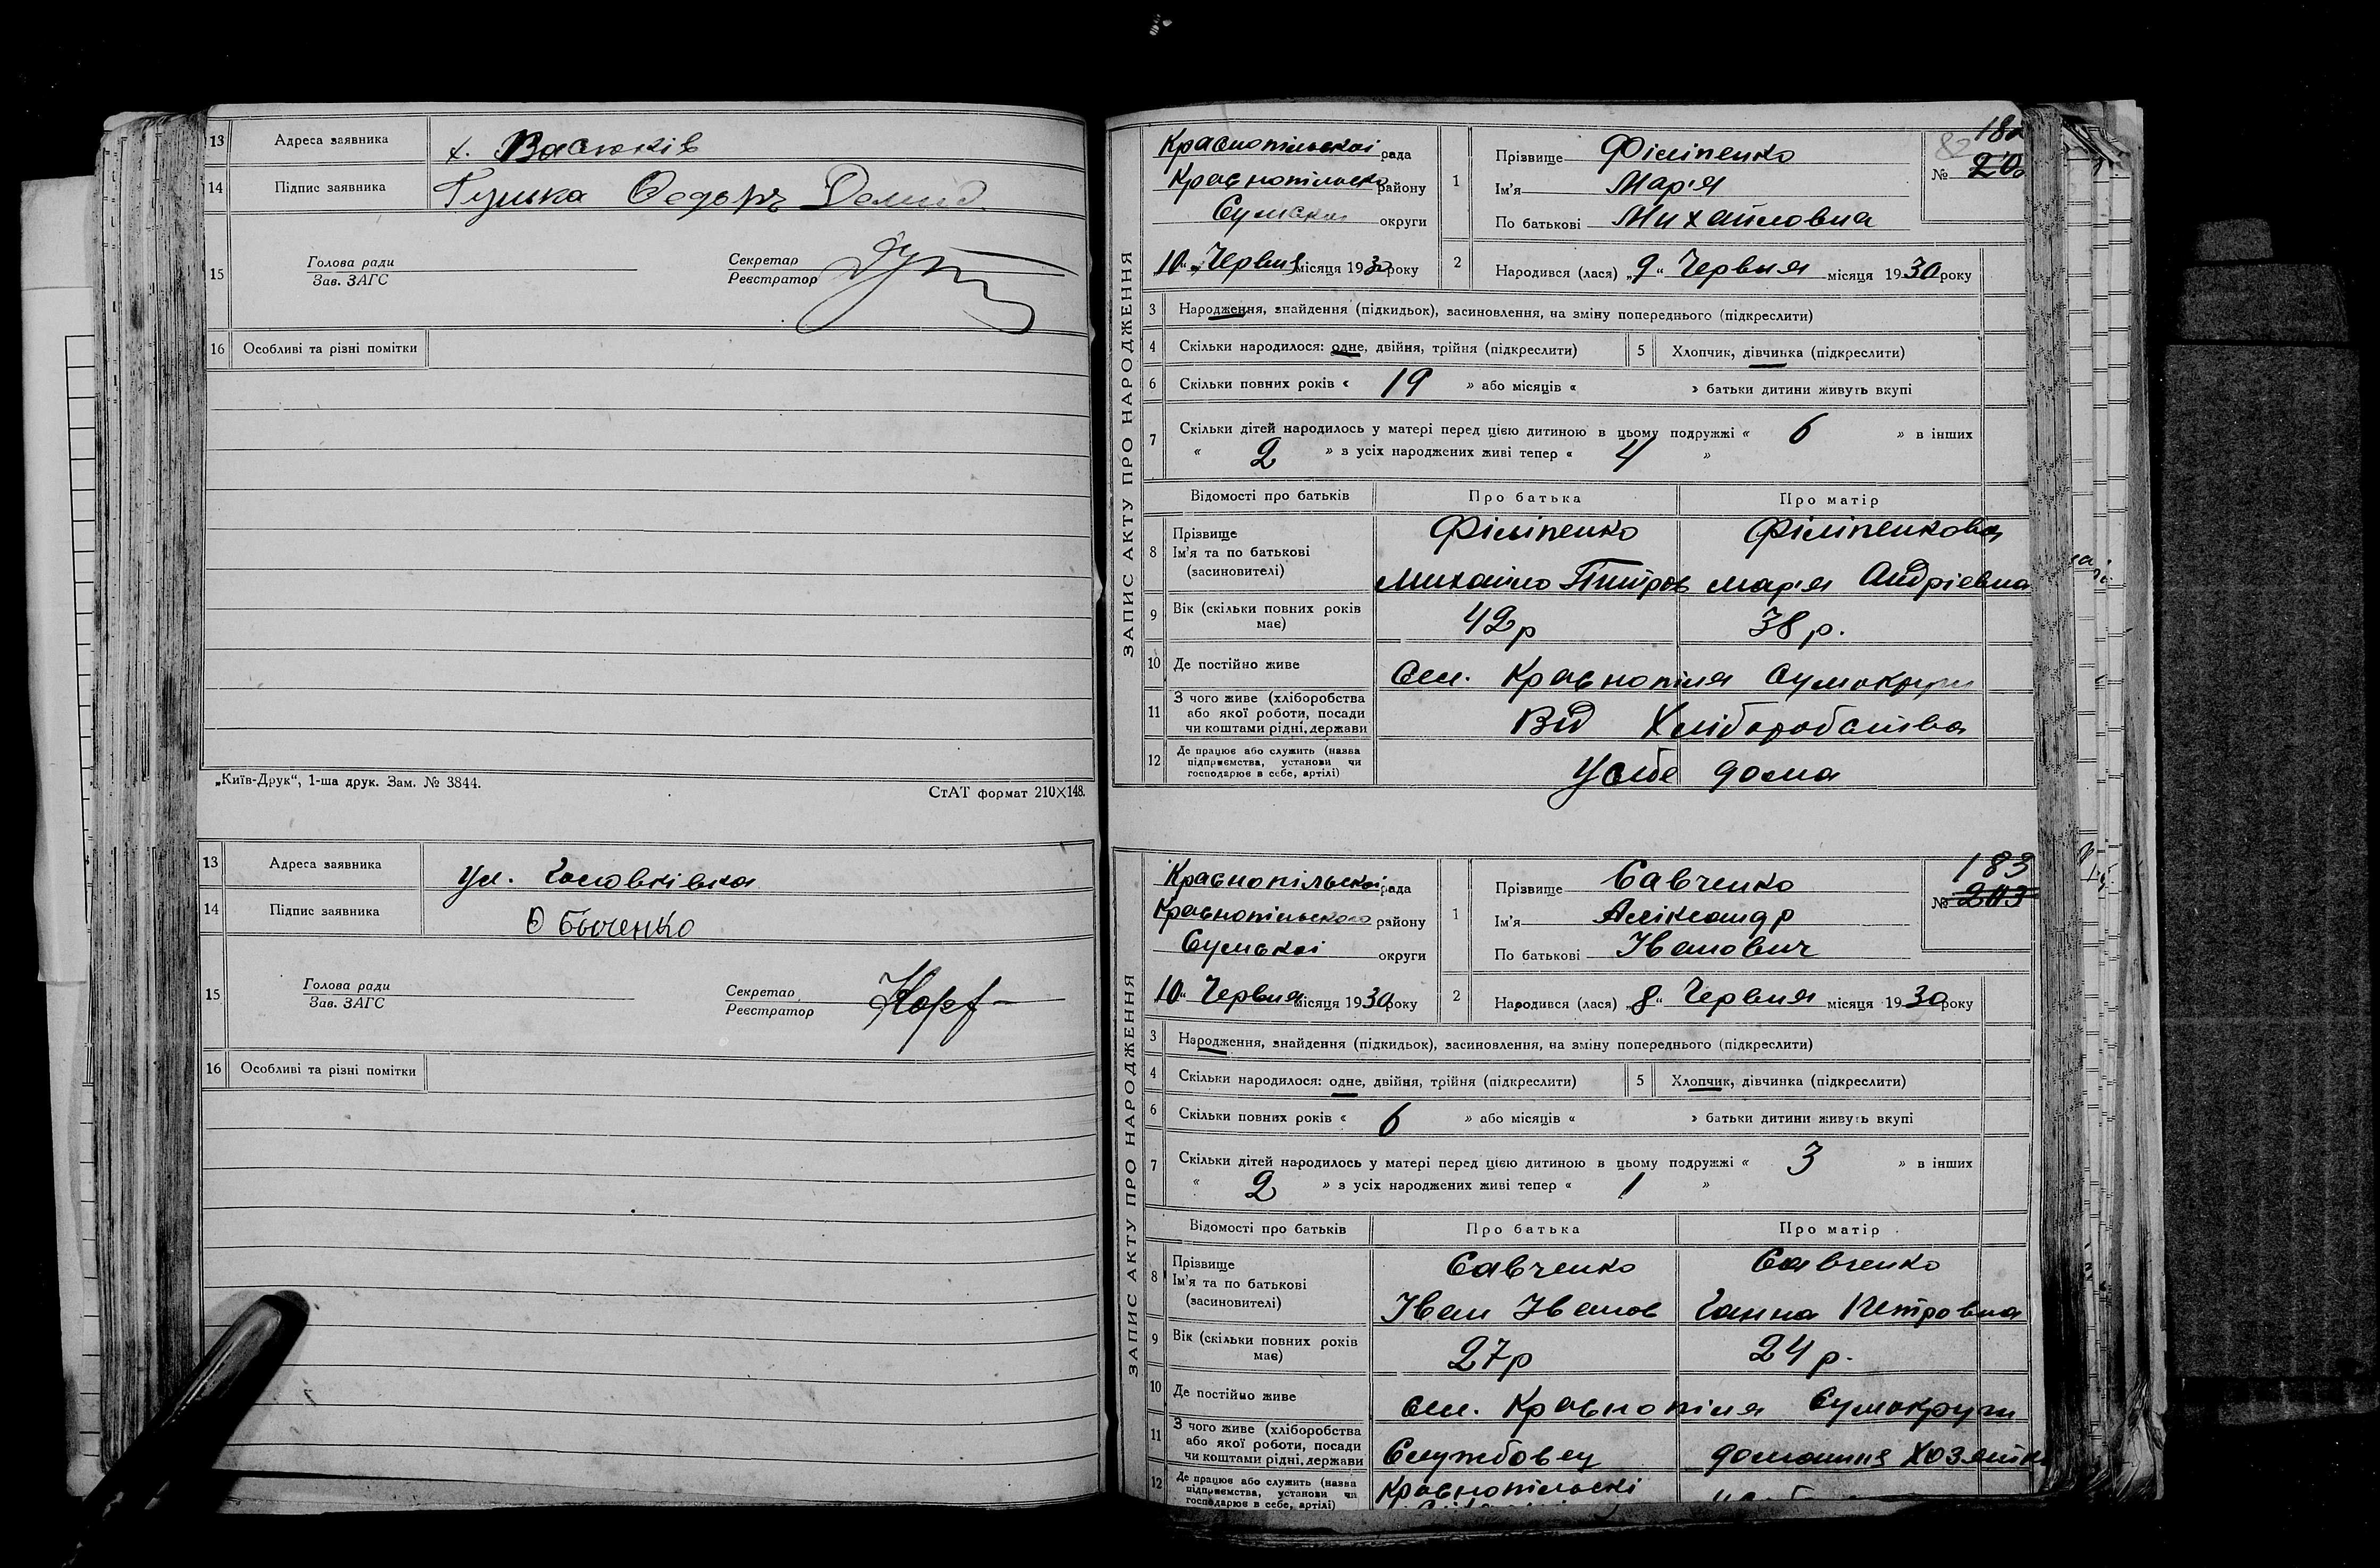 13 Адреса заявника х. Васюків
14 Підпис заявника Гулька Федоръ
15 Голова ради Зав. ЗАГС Секретар Реєстратор
16 Особливі та різні помітки
„Київ-Друк“, 1-ша друк. Зам. № 3844.
СтАТ формат 210×148.
13 Адреса заявника ул.
14 Підпис заявника
15 Голова ради Зав. ЗАГС Секретар Реєстратор
16 Особливі та різні помітки
ЗАПИС АКТУ ПРО НАРОДЖЕННЯ
Краснопільскої рада
Краснопільско району
Сумскої округи
„10“ Червня місяця 1930 року
1 Прізвище Філіпенко
Ім'я Мар'я
По батькові Михайловна
82
№
2 Народився (лася) „9“ Червня місяця 1930 року
3 Народження, знайдення (підкидьок), засиновлення, на зміну попереднього (підкреслити)
4 Скільки народилося: одне, двійня, трійня (підкреслити) 5 Хлопчик, дівчинка (підкреслити)
6 Скільки повних років « 19 » або місяців « » батьки дитини живуть вкупі
7 Скільки дітей народилось у матері перед цією дитиною в цьому подружжі « 6 » в інших
« 2 » з усіх народжених живі тепер « 4 »
Відомості про батьків Про батька Про матір
8 Прізвище Філіпенко Філіпенкова
Ім'я та по батькові
(засиновителі) Михайло Питров Мар'я Андріевна
9 Вік (скільки повних років має) 42р 38р.
10 Де постійно живе Сел. Краснопілля Сумокруги
11 З чого живе (хліборобства або якої роботи, посади чи коштами рідні, держави Від Хліборобства
12 Де працює або служить (назва підприємства, установи чи господарює в себе, артілі) Усебе дома
ЗАПИС АКТУ ПРО НАРОДЖЕННЯ
Краснопільскої рада
Краснопільского району
Сумської округи
„10“ Червня місяця 1930 року
1 Прізвище Савченко
Ім'я Аліксандр
По батькові Іванович
183
№ 203
2 Народився (лася) „8“ Червня місяця 1930 року
3 Народження, знайдення (підкидьок), засиновлення, на зміну попереднього (підкреслити)
4 Скільки народилося: одне, двійня, трійня (підкреслити) 5 Хлопчик, дівчинка (підкреслити)
6 Скільки повних років « 6 » або місяців « » батьки дитини живуть вкупі
7 Скільки дітей народилось у матері перед цією дитиною в цьому подружжі « 3 » в інших
« 2 » з усіх народжених живі тепер « 1 »
Відомості про батьків Про батька Про матір
8 Прізвище Савченко Савченко
Ім'я та по батькові
(засиновителі) Іван Іванов Ганна Петровна
9 Вік (скільки повних років має) 27р 24р.
10 Де постійно живе сел. Краснопілля Сумокруги
11 З чого живе (хліборобства або якої роботи, посади чи коштами рідні, держави Службовец домашня
12 Де працює або служить (назва підприємства, установи чи господарює в себе, артілі) Краснопільскі